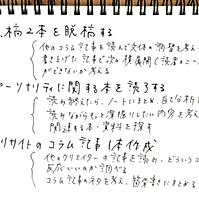 稿2本を脱稿する
他のコラム記事を読んで文体の調整を考え
書きあげた記事で次の横展開(読者のニー
ができないか考える
パーソナリティに関する本を読了する
読み終えたら、ノートにまとめ、自己分析
読みながらもっと深掘りしたい内容を考え
関連する本・資料を探す
サイトのコラム記事1本作成
他のクリエイターの記事を読み、どういうコ
反応いいのか調べる
コラム記事のネタを考え、箇条書きにまとめる